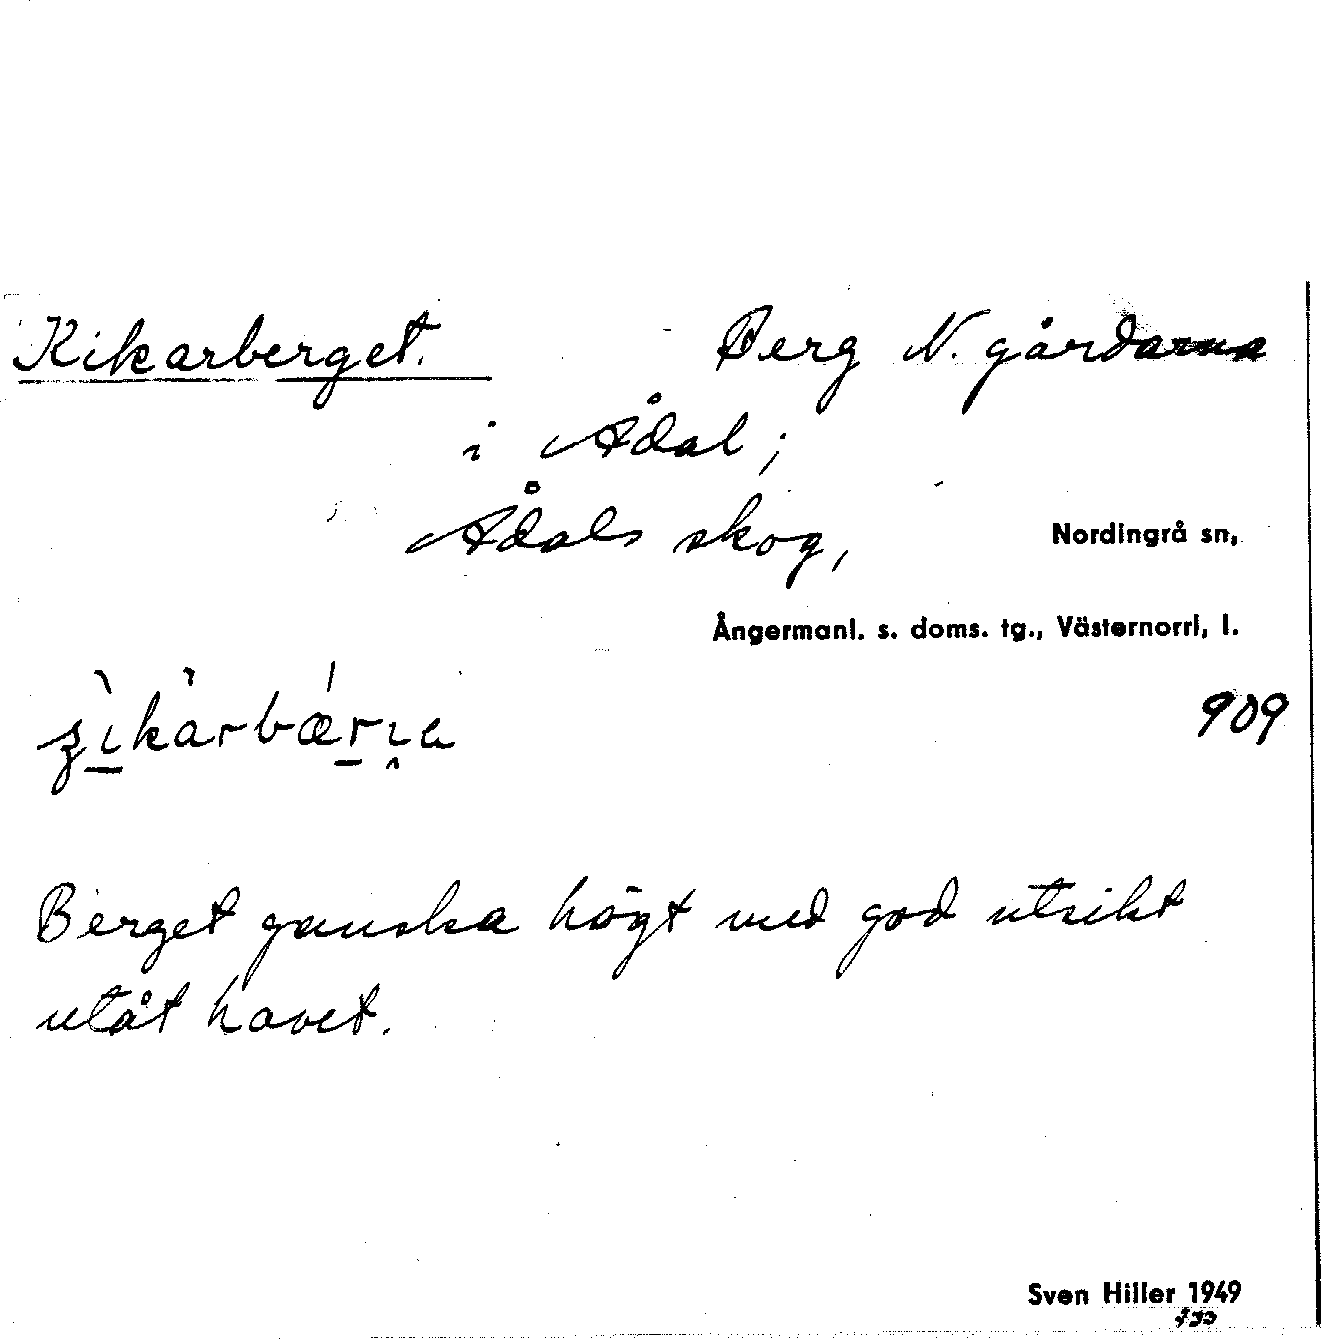 Kikarberget. Berg N. gårdarna
i Ådal;
Ådals skog,
Nordingrå sn,
Ångermanl. s. doms. tg., Västernorrl, l.
909
Berget ganska högt med god utsikt
utåt havet.
Sven Hiller 1949